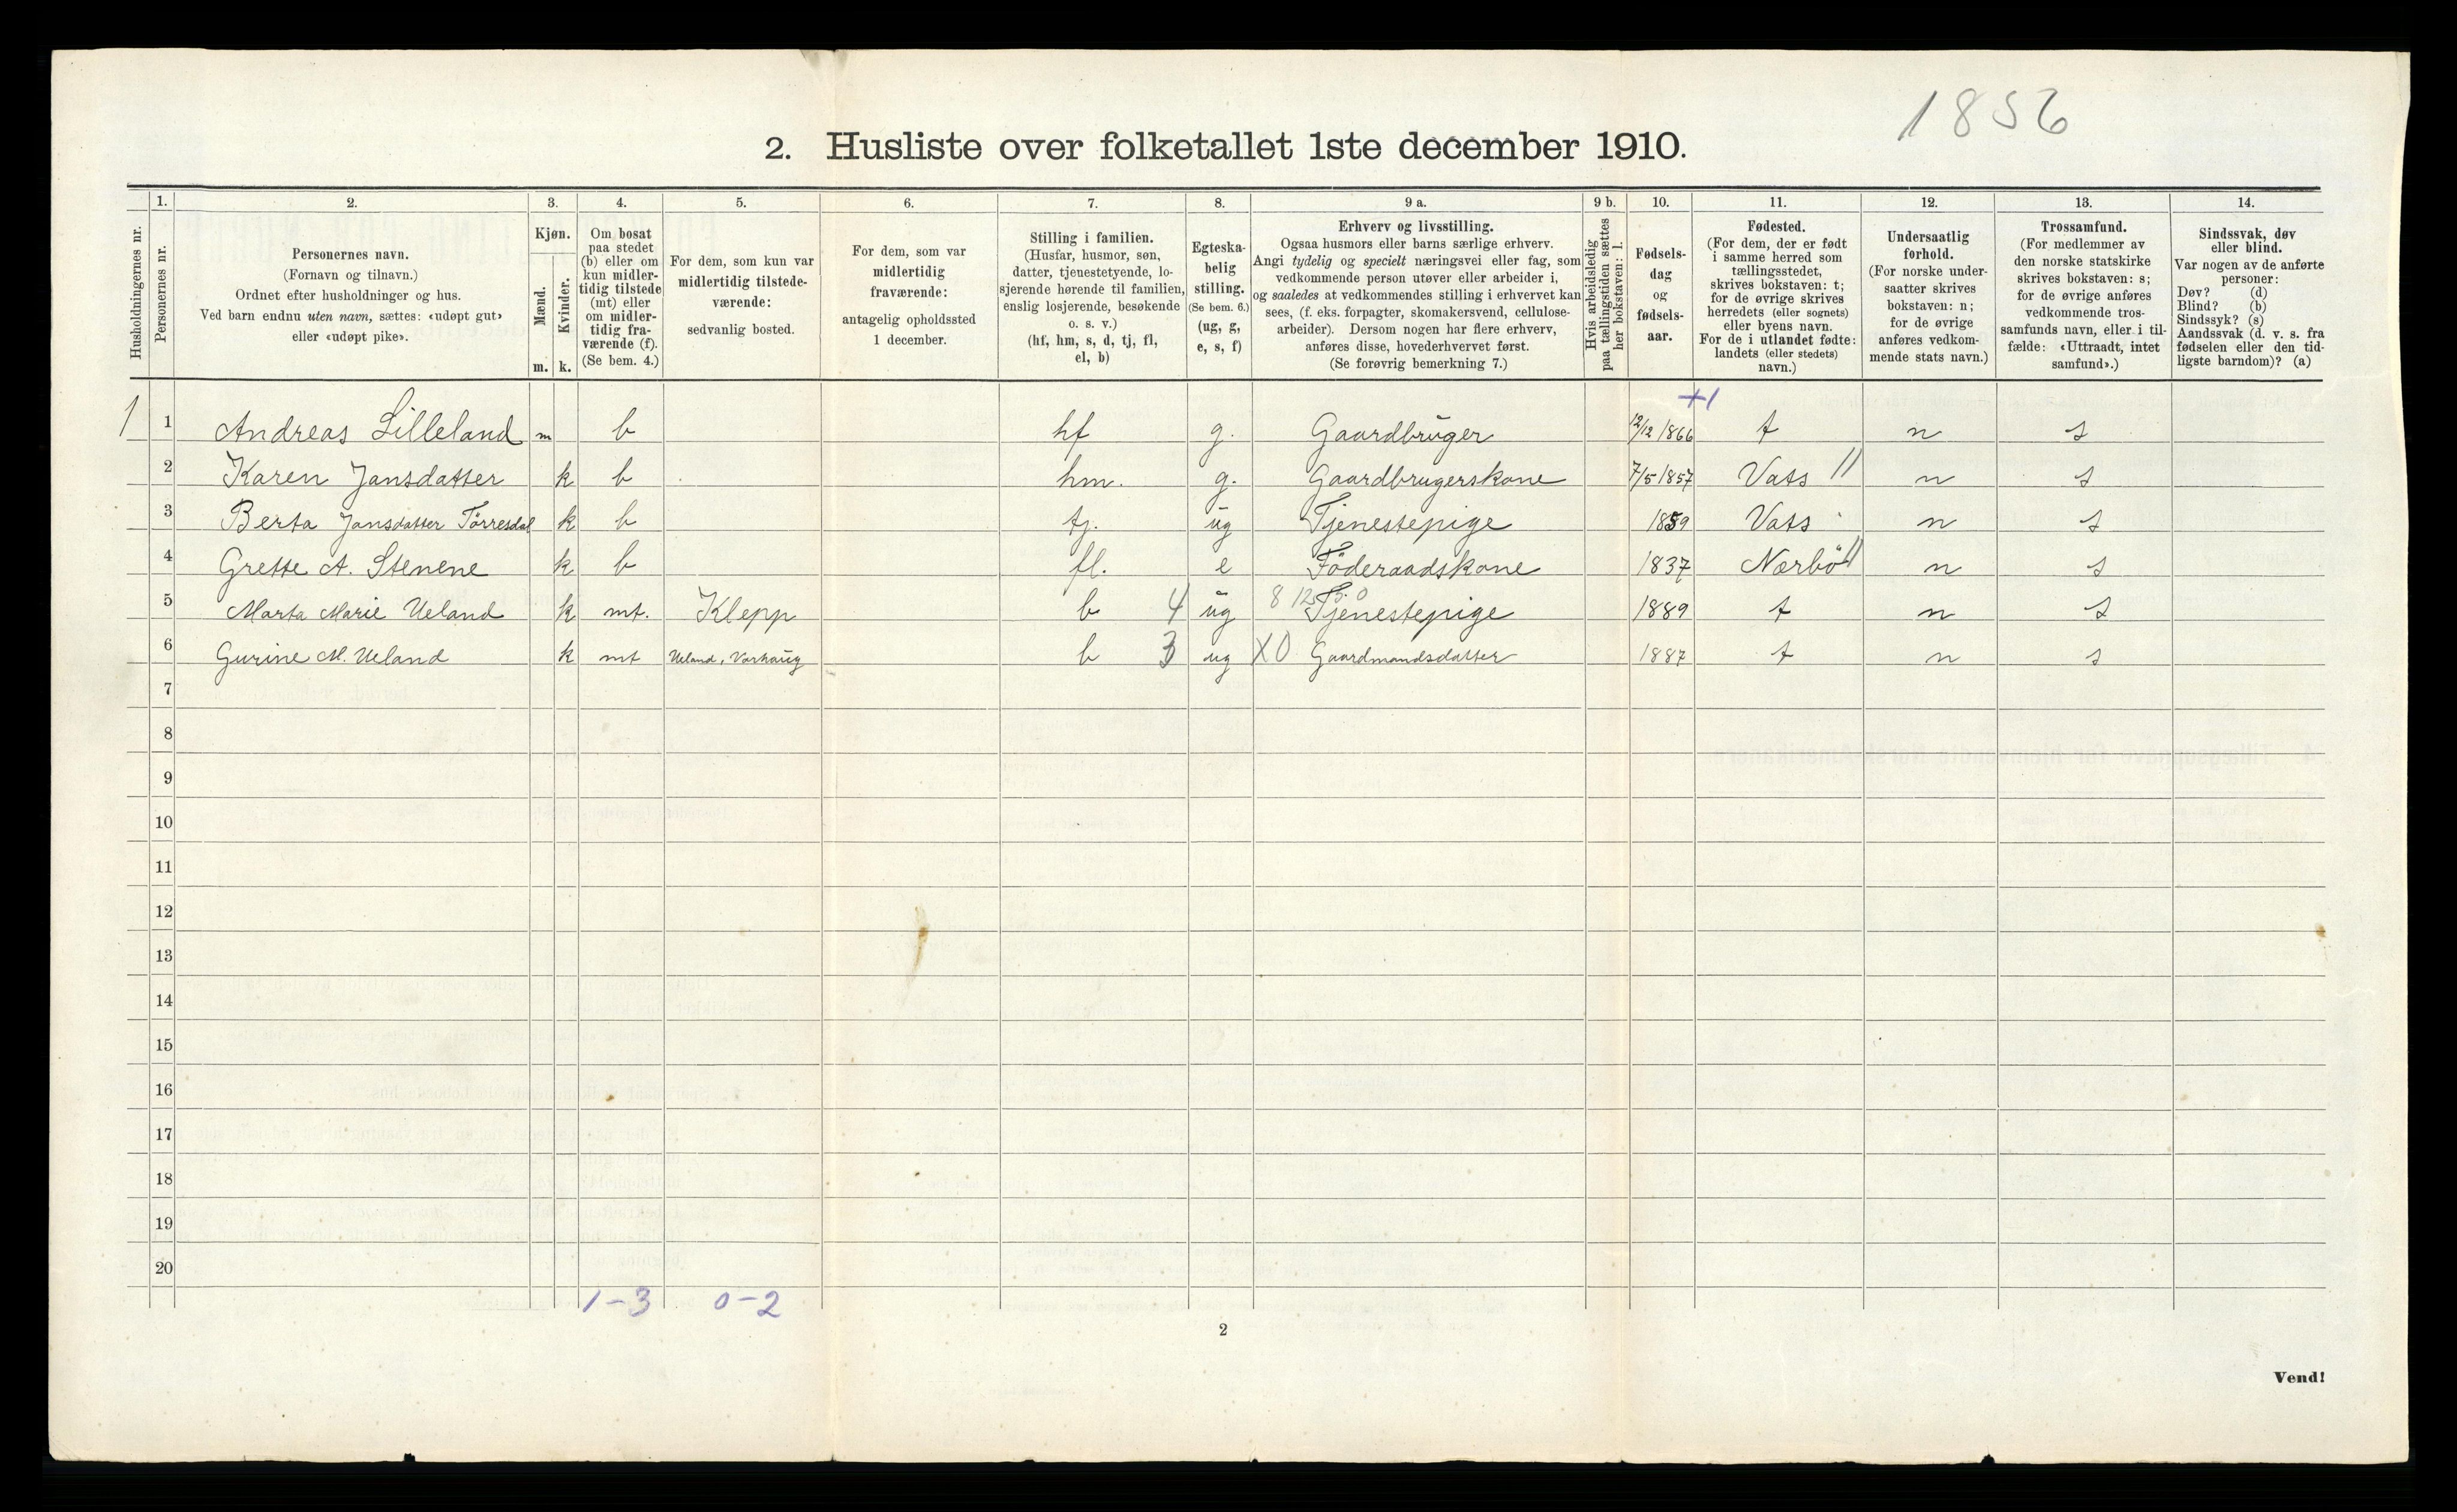 1856
2. Husliste over folketallet 1ste december 1910.
Husholdningernes nr.
1. Personernes nr.
2. Personernes navn. (Fornavn og tilnavn.) Ordnet efter husholdninger og hus. Ved barn endnu uten navn, sættes: «udøpt gut» eller «udøpt pike».
3. Kjøn. Mænd. m. Kvinder. k.
4. Om bosat paa stedet (b) eller om kun midlertidig tilstede (mt) eller om midlertidig fraværende (f). (Se bem. 4.)
5. For dem, som kun var midlertidig tilstedeværende: sedvanlig bosted.
6. For dem, som var midlertidig fraværende: antagelig opholdssted 1 december.
7. Stilling i familien. (Husfar, husmor, søn, datter, tjenestetyende, losjerende hørende til familien, enslig losjerende, besøkende o. s. v.) (hf, hm, s, d, tj, fl, el, b)
8. Egteskabelig stilling. (Se bem. 6.) (ug, g, e, s, f)
9 a. Erhverv og livsstilling. Ogsaa husmors eller barns særlige erhverv. Angi tydelig og specielt næringsvei eller fag, som vedkommende person utøver eller arbeider i, og saaledes at vedkommendes stilling i erhvervet kan sees, (f. eks. forpagter, skomakersvend, cellulosearbeider). Dersom nogen har flere erhverv, anføres disse, hovederhvervet først. (Se forøvrig bemerkning 7.)
9 b. Hvis arbeidsledig paa tællingstiden sættes her bokstaven: l.
10. Fødselsdag og fødselsaar.
11. Fødested. (For dem, der er født i samme herred som tællingsstedet, skrives bokstaven: t; for de øvrige skrives herredets (eller sognets) eller byens navn. For de i utlandet fødte: landets (eller stedets) navn.)
12. Undersaatlig forhold. (For norske undersaatter skrives bokstaven: n; for de øvrige anføres vedkommende stats navn.)
13. Trossamfund. (For medlemmer av den norske statskirke skrives bokstaven: s; for de øvrige anføres vedkommende trossamfunds navn, eller i tilfælde: «Uttraadt, intet samfund».)
14. Sindssvak, døv eller blind. Var nogen av de anførte personer: Døv? (d) Blind? (b) Sindssyk? (s) Aandssvak (d. v. s. fra fødselen eller den tidligste barndom)? (a)
+1
1 1 Andreas Lilleland m b hf g. Gaardbruger 12/12 1866 t n s
2 Karen Jansdatter k b hm. g. Gaardbrugerskone 7/5 1857 Vats // n s
3 Berta Jansdatter Tørresdal k b tj. ug Tjenestepige 1859 Vats n s
4 Grette A. Stenene k b fl. e Föderaadskone 1837 Nærbö // n s
5 Marta Marie Ueland k mt. Klepp b 4 ug Tjenestepige 1889 t n s
6 Gurine M. Ueland k mt Ueland, Varhaug b 3 ug X0 Gaardmandsdatter 1887 t n s
7
8
9
10
11
12
13
14
15
16
17
18
19
20
1-3 0-2
2
Vend!